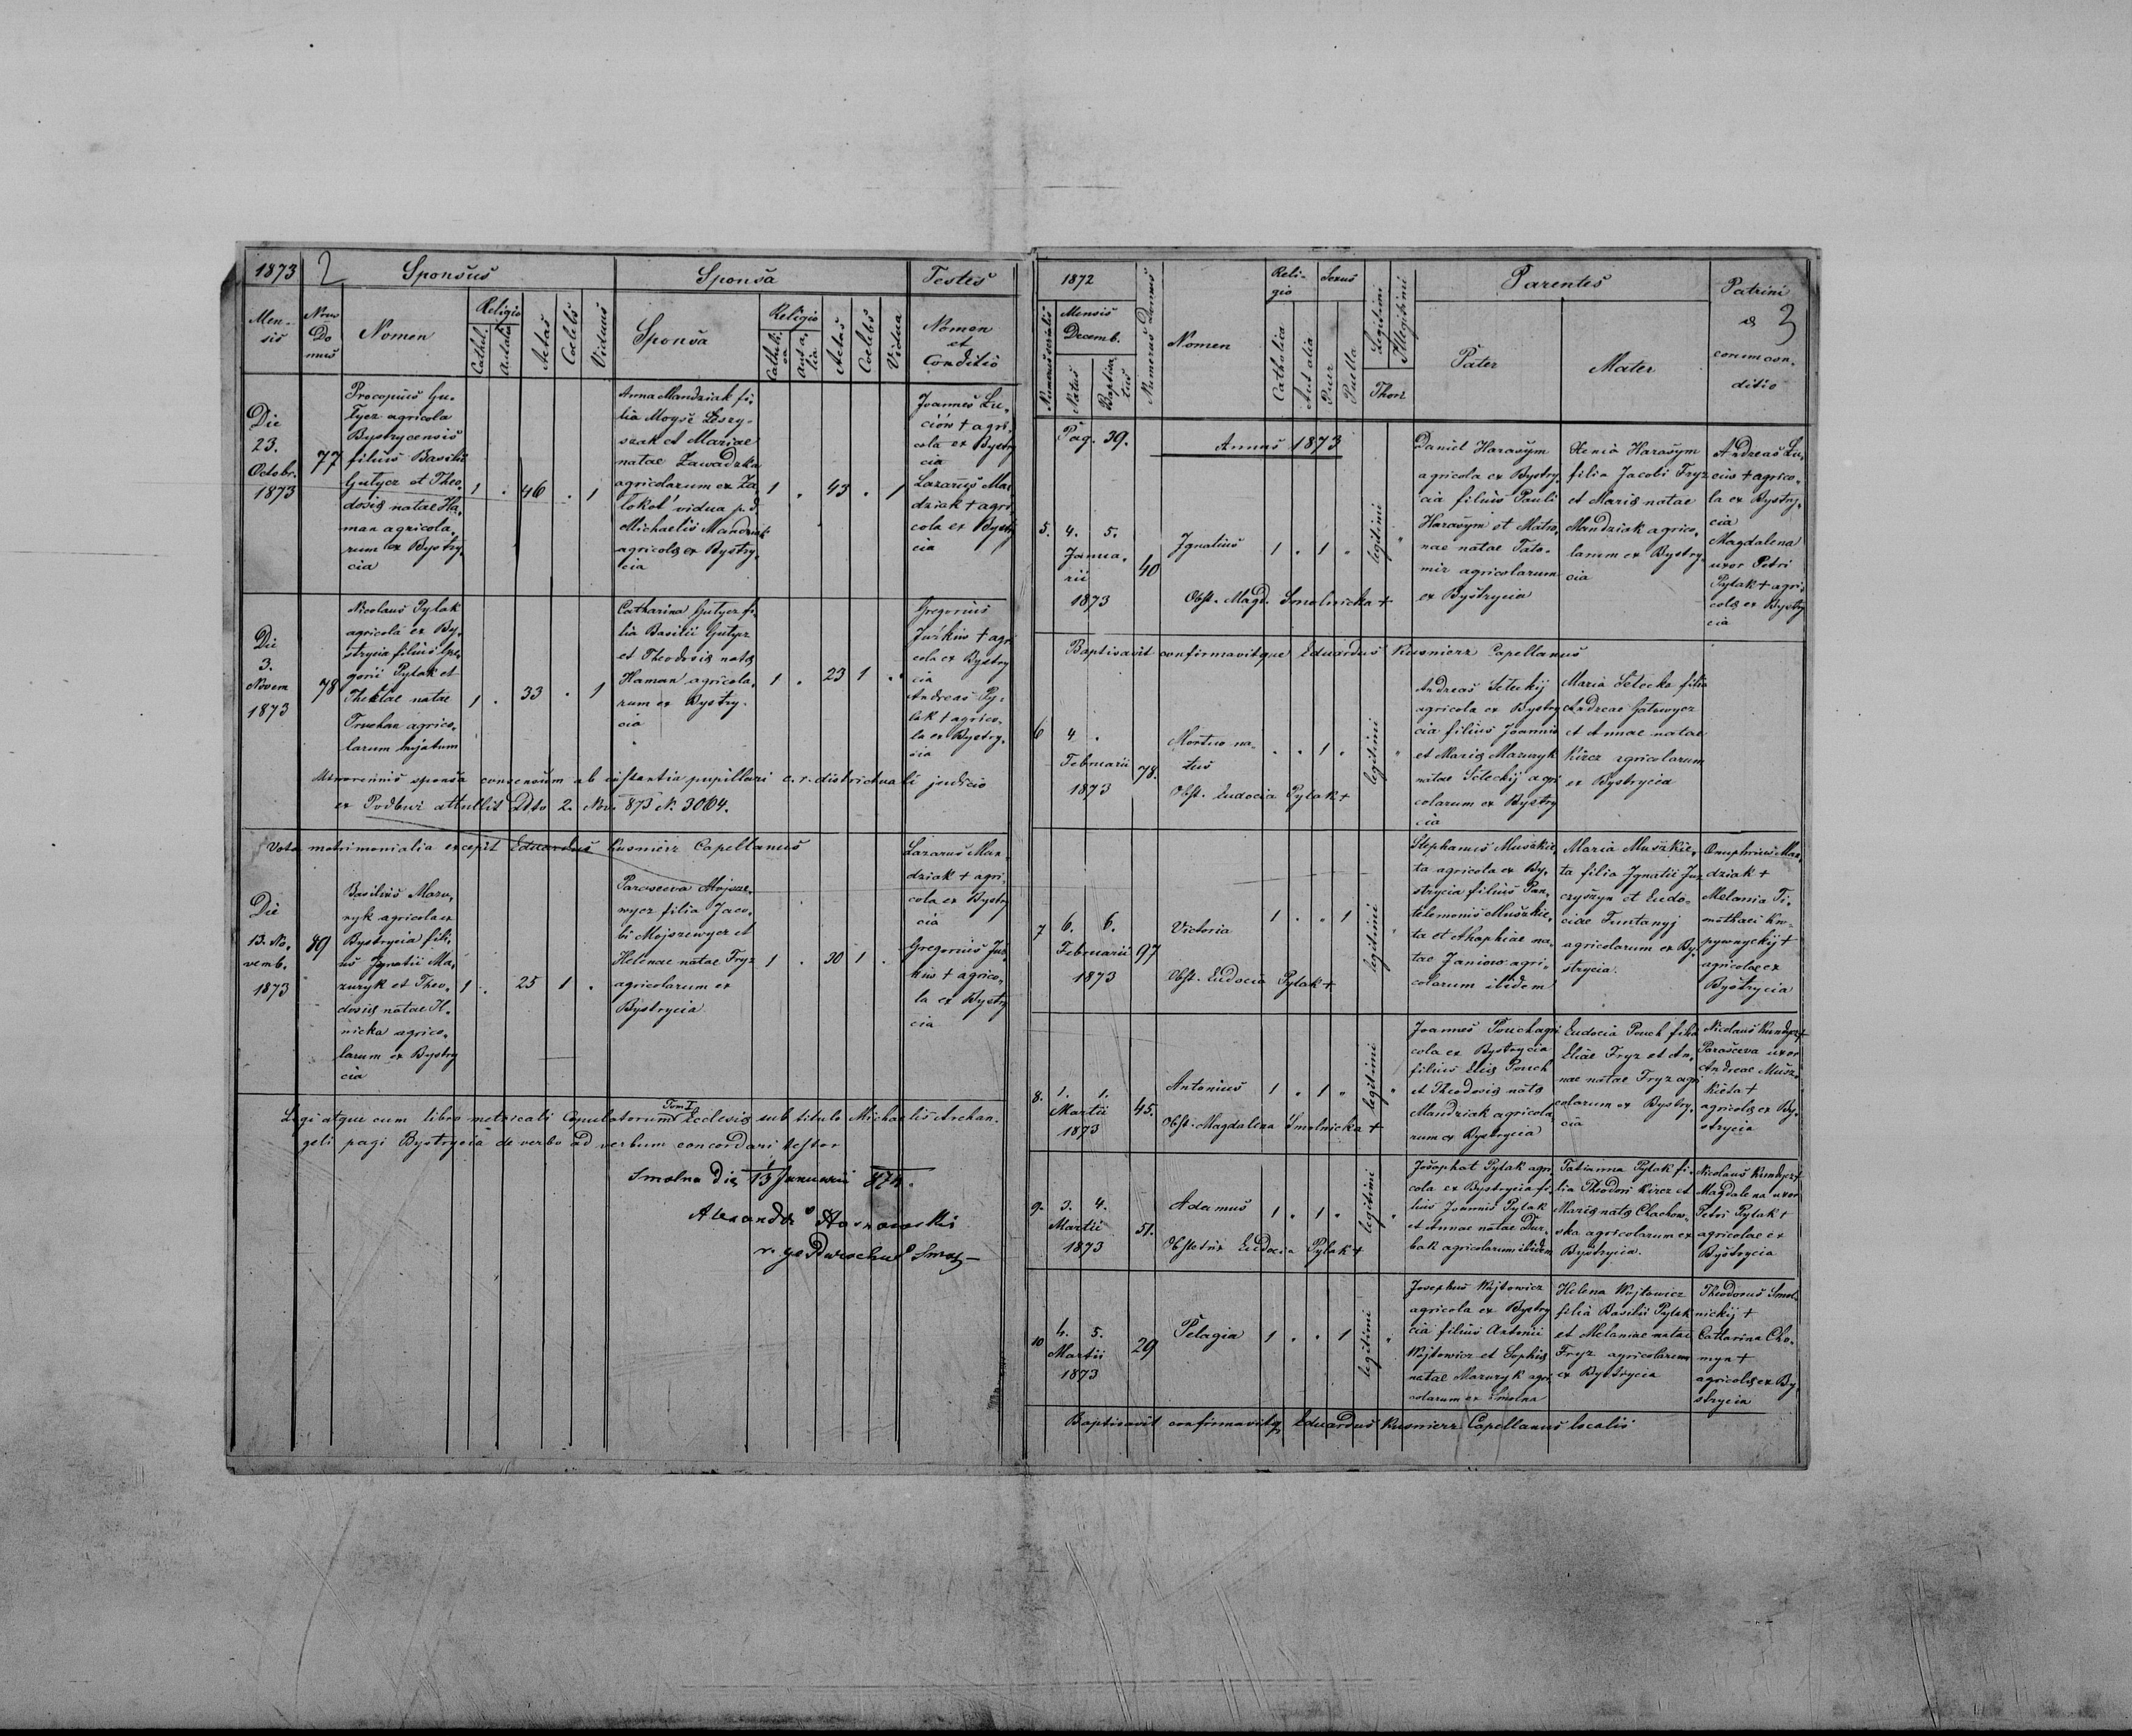 1873 2 Sponsus Sponsa Testes
Mensis Nrus Domus Nomen Religio Cathol. Aut alia Aetas Coelebs Viduus Sponsa Religio Catholica aut alia Aetas Coelebs Vidua Nomen et Conditio
Die
23.
Octobr.
1873
77
Procopius Gu-
tycz agricola
Bystrycensis
filius Basilii
Gutycz et Theo-
dosię natae Ha-
man agricola-
rum ex Bystry-
cia
1 . 46 . 1
Anna Mandziak fi-
lia Moysė Leszy-
szak et Mariae
natae Zawadzka
agricolarum ex Za
łokoť vidua p. d.
Michaelis Mandziak
agricolę ex Bystry-
cia
1 . 43 . 1
Joannes Lu-
ciów + agri-
cola ex Bystry
cia
Lazarus Man
dziak + agri
cola ex Bystry
cia
Die
3.
Novem
1873
78
Nicolaus Pylak
agricola ex By-
strycia filius Gre-
gorii Pylak et
Theklae natae
Truchan agrico-
larum hujatum
1 . 33 . 1
Catharina Gutycz fi-
lia Basilii Gutycz
et Theodosię natę
Haman agricola-
rum ex Bystry-
cia
1 . 23 1 .
Gregorius
Juśkiw + agri
cola ex Bystry
cia
Andreas Py-
lak + agrico-
la ex Bystry-
cia
Minorennis sponsa consensum ab instantia pupillari c. r. districtuali judicio
ex Podbuż attullit Ddto 2. Nov. 873 N. 3064.
Vota matrimonialia excepit Eduardus Kusnierz Capellanus
Die
13. No-
vemb.
1873
89
Basilius Mazu-
ryk agricola ex
Bystrycia fili-
us Ignatii Ma-
zuryk et Theo-
dosię natae Il-
nicka agrico-
larum ex Bystry
cia
1 . 25 1 .
Parasceva Mojsze-
wycz filia Jaco-
bi Mojszewycz et
Helenae natae Fryz
agricolarum ex
Bystrycia
1 . 30 1 .
Lazarus Man-
dziak + agri-
cola ex Bystry
cia
Gregorius Juś
kiw + agrico-
la ex Bystry
cia
Legi atque cum libro metricali Copulatorum Tom I. Eclesię sub titulo Michaelis Archan-
geli pagi Bystrycia de verbo ad verbum concordari testor
Smolna Die 13 Januarii 874.
Parochus
1872 Religio Sexus Parentes Patrini
3
Numerus serialis Mensis Decemb. Natus Baptisatus Numerus Domus Nomen Catholica Aut alia Puer Puella Legitimi Illegitimi Thori Pater Mater & eorum conditio
Pag. 39.
Annus 1873
5. 4. 5.
Janua-
rii
1873
40
Ignatius 1 . 1 . legitimi
Obst. Magd. Smolnicka +
Daniel Harasym
agricola ex Bystry-
cia filius Pauli
Harasym et Matro-
nae natae Tato-
mir agricolarum
ex Bystrycia
Xenia Harasym
filia Jacobi Fryz
et Marię natae
Mandziak agrico-
larum ex Bystry-
cia
Andreas Lu-
ciw + agrico-
la ex Bystry-
cia
Magdalena
uxor Petri
Pylak + agri-
colę ex Bystry
cia
Baptisavit confirmavitque Eduardus Kusnierz Capellanus
6 4 .
Februarii
1873
78.
Mortuo na-
tus . . 1 . legitimi
Obst. Eudocia Pylak +
Andreas Seteckij
agricola ex Bystry
cia filius Joannis
et Marię Mazuryk
natae Seteckij agri
colarum ex Bystry
cia
Maria Setecka filia
Andreae Gatowycz
et Annae natae
Kircz agricolarum
ex Bystrycia
7 6. 6.
Februarii
1873
97
Victoria 1 . . 1 legitimi
Obst. Eudocia Pylak +
Stephanus Muszkie-
ta agricola ex By-
strycia filius Pan-
telemonis Muszkie-
ta et Ahaphiae na-
tae Janiow agri-
colarum ibidem
Maria Muszkie-
ta filia Ignatii Jur
czyszyn et Eudo-
ciae Funtanyj
agricolarum ex By-
strycia
Onuphrius Man-
dziak +
Melania Ti-
mothaei Kro-
pywnyckij +
agricolae ex
Bystrycia
8. 1. 1.
Martii
1873
45.
Antonius 1 . 1 . legitimi
Obst. Magdalena Smolnicka +
Joannes Pouch agri
cola ex Bystrycia
filius Elię Pouch
et Theodosię natę
Mandziak agricola
rum ex Bystrycia
Eudocia Pouch filia
Eliae Fryz et An-
nae natae Fryz agri
colarum ex Bystry-
cia
Nicolaus Kundycz +
Parasceva uxor
Andreae Musz-
kieta +
agricolę ex By-
strycia
9. 3. 4.
Martii
1873
51.
Adamus 1 . 1 . legitimi
Obstetrix Eudocia Pylak +
Josaphat Pylak agri-
cola ex Bystrycia fi-
lius Joannis Pylak
et Annae natae Dur-
bak agricolarum ibidem
Tatianna Pylak fi-
lia Theodori Kircz et
Marię natę Chachow-
ska agricolarum ex
Bystrycia
Nicolaus Kundycz +
Magdalena uxor
Petri Pylak +
agricolae ex
Bystrycia
10 4. 5.
Martii
1873
29
Pelagia 1 . . 1 legitimi
Josephus Wojtowicz
agricola ex Bystry
cia filius Antonii
Wojtowicz et Sophię
natae Mazuryk agri
colarum ex Smolna
Helena Wojtowicz
filia Basilii Pylak
et Melaniae natae
Fryz agricolarum
ex Bystrycia
Theodorus Smol-
nickij +
Catharina Cho-
myn +
agricolę ex By-
strycia
Baptisavit confirmavitq Eduardus Kusnierz Capellanus localis